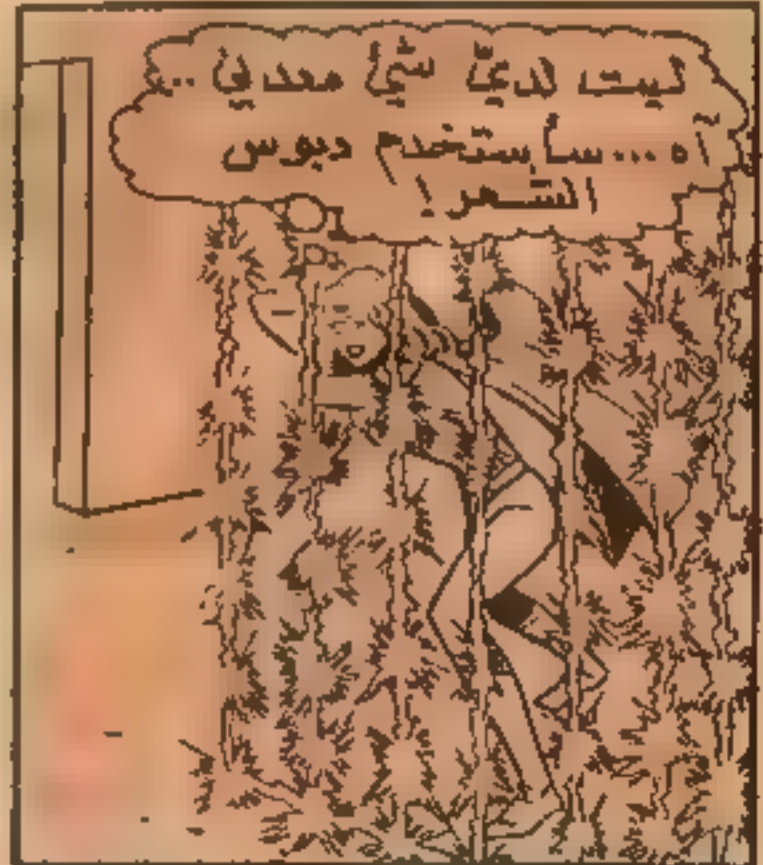 ليت لديّ شئ معدني ..
آه ... سأستخدم دبوس
الشعر !